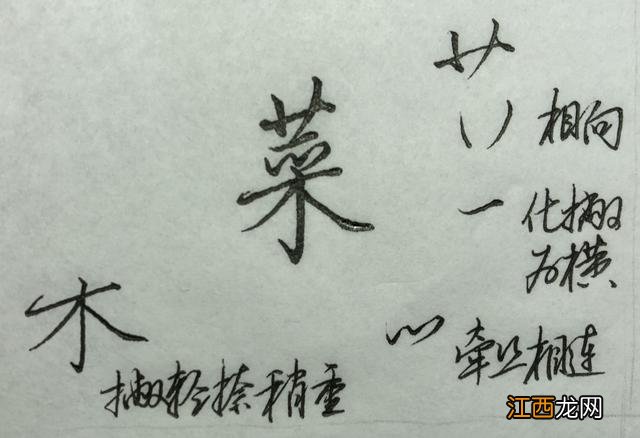 艹
相向
菜
化撇
为横
木
牵丝相连
撇轻捺稍重
江西龙网